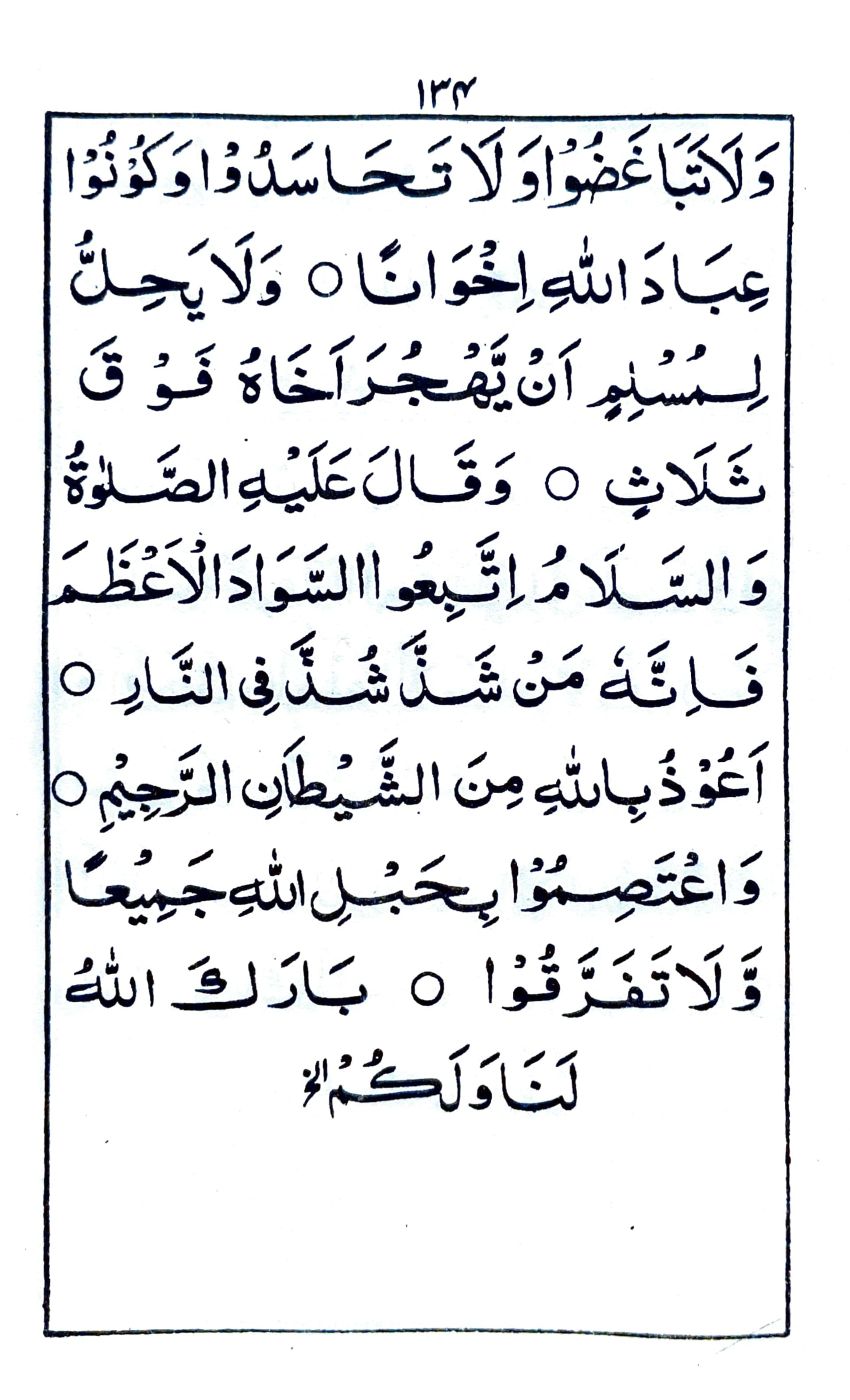 ۱۳۴
وَلَا تَبَاغَضُوْا وَلَا تَحَاسَدُوْا وَكُوْنُوْا
عِبَادَ اللهِ اِخْوَانًا ○ وَلَا يَحِلُّ
لِمُسْلِمٍ اَنْ يَّهْجُرَ اَخَاهُ فَوْقَ
ثَلَاثٍ ○ وَقَالَ عَلَيْهِ الصَّلٰوةُ
وَالسَّلَامُ اِتَّبِعُوا السَّوَادَ الْاَعْظَمَ
فَاِنَّهٗ مَنْ شَذَّ شُذَّ فِى النَّارِ ○
اَعُوْذُ بِاللهِ مِنَ الشَّيْطَانِ الرَّجِيْمِ ○
وَاعْتَصِمُوْا بِحَبْلِ اللهِ جَمِيْعًا
وَّلَا تَفَرَّقُوْا ○ بَارَكَ اللهُ
لَنَا وَلَكُمْ الخ